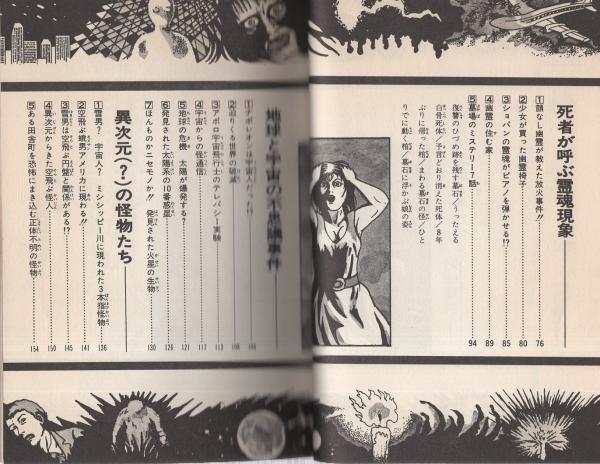 死者が呼ぶ霊魂現象
1 顔なし幽霊が教えた放火事件!! 76
2 少女が買った幽霊椅子 80
3 ショパンの霊魂がピアノを弾かせる!? 85
4 幽霊の住む家 89
5 墓場のミステリー7話 94
復讐のひづめ跡を残す墓石/うったえる
白骨死体/予言どおり消えた死体/8年
ぶりに帰った棺/まわる墓石の怪/ひと
りでに動く棺/墓石に浮かぶ娘の姿
地球と宇宙の
事件
1 ナポレオンは宇宙人だった!?
2 迫りくる世界の破滅 108
3 アポロ宇宙飛行士のテレパシー実験 113
4 宇宙からの怪通信 117
5 地球の危機 太陽が爆発する? 121
6 発見された太陽系の10番惑星 126
7 ほんものかニセモノか!! 発見された火星の生物 130
異次元(?)の怪物たち
1 雪男? 宇宙人? ミシシッピー川に現われた3本指怪物 136
2 空飛ぶ蛾男アメリカに現わる!! 141
3 雪男は空飛ぶ円盤と関係がある!? 145
4 異次元からきた空飛ぶ怪人 150
5 ある田舎町を恐怖にまき込む正体不明の怪物 154